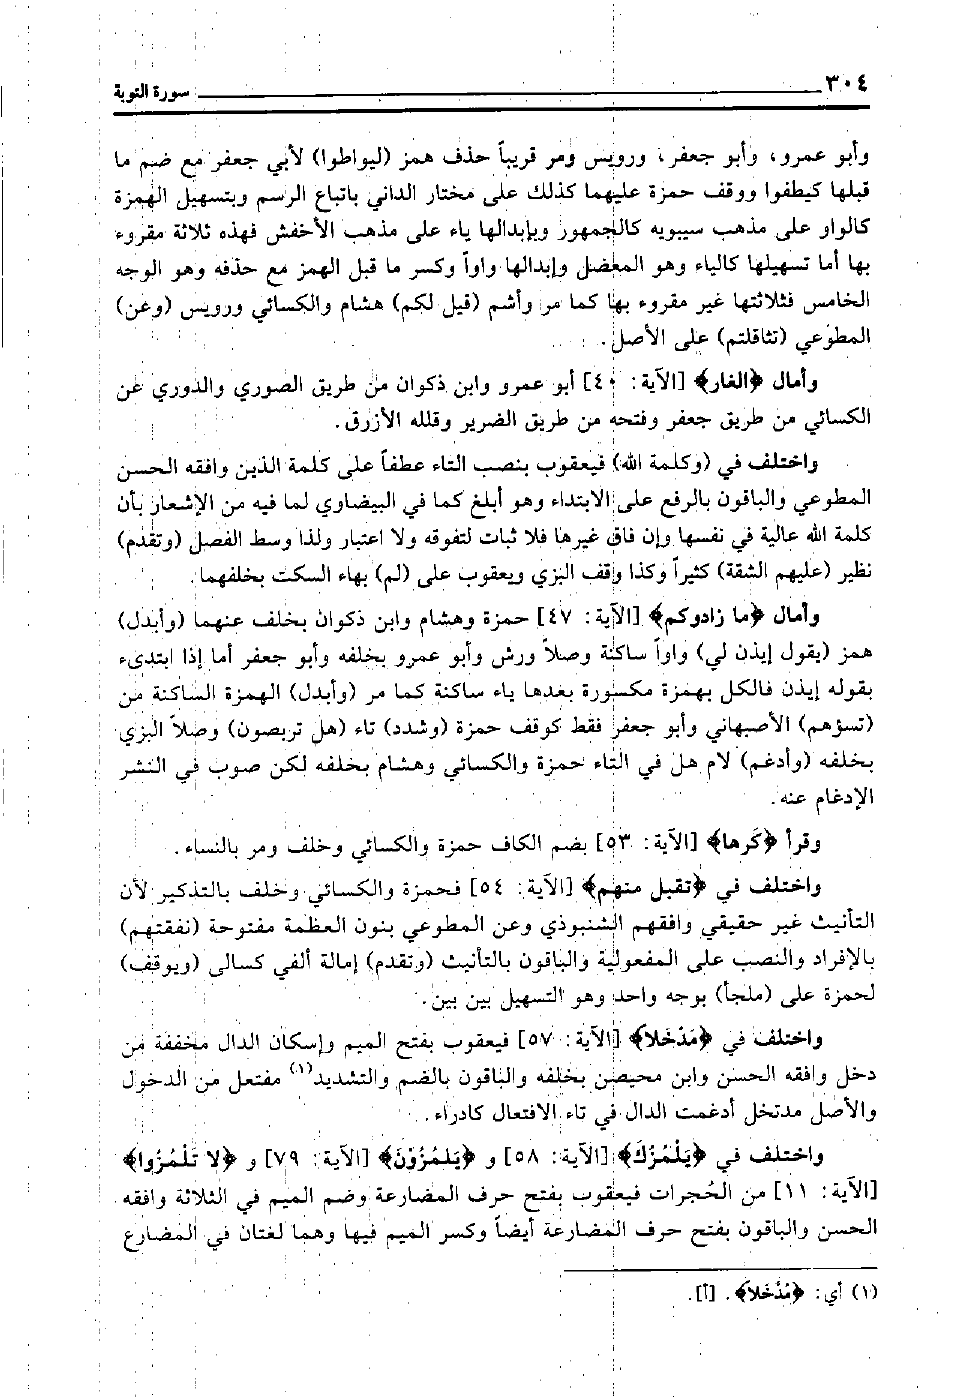 ٣٠٤ سورة التوبة
وأبو عمرو، وأبو جعفر، ورويس ومر قريباً حذف همز (ليواطوا) لأبي جعفر مع ضم ما
قبلها كيطفوا ووقف حمزة عليهما كذلك على مختار الداني باتباع الرسم وبتسهيل الهمزة
كالواو على مذهب سيبويه كالجمهور وبإبدالها ياء على مذهب الأخفش فهذه ثلاثة مقروء
بها أما تسهيلها كالياء وهو المعضل وإبدالها واواً وكسر ما قبل الهمز مع حذفه وهو الوجه
الخامس فثلاثتها غير مقروء بها كما مر وأشم (قيل لكم) هشام والكسائي ورويس (وعن)
المطوعي (تثاقلتم) على الأصل.
وأمال ﴿الغار﴾ [الآية: ٤٠] أبو عمرو وابن ذكوان من طريق الصوري والدوري عن
الكسائي من طريق جعفر وفتحه من طريق الضرير وقلله الأزرق.
واختلف في (وكلمة الله) فيعقوب بنصب التاء عطفاً على كلمة الذين وافقه الحسن
المطوعي والباقون بالرفع على الابتداء وهو أبلغ كما في البيضاوي لما فيه من الإشعار بأن
كلمة الله عالية في نفسها وإن فاق غيرها فلا ثبات لتفوقه ولا اعتبار ولذا وسط الفصل (وتقدم)
نظير (عليهم الشقة) كثيراً وكذا وقف البزي ويعقوب على (لم) بهاء السكت بخلفهما.
وأمال ﴿ما زادوكم﴾ [الآية: ٤٧] حمزة وهشام وابن ذكوان بخلف عنهما (وأبدل)
همز (يقول إيذن لي) واواً ساكنة وصلاً ورش وأبو عمرو بخلفه وأبو جعفر أما إذا ابتدىء
بقوله إيذن فالكل بهمزة مكسورة بعدها ياء ساكنة كما مر (وأبدل) الهمزة الساكنة من
(تسؤهم) الأصبهاني وأبو جعفر فقط كوقف حمزة (وشدد) تاء (هل تربصون) وصلاً البزي
بخلفه (وأدغم) لام هل في التاء حمزة والكسائي وهشام بخلفه لكن صوب في النشر
الإدغام عنه.
وقرأ ﴿كَرها﴾ [الآية: ٥٣] بضم الكاف حمزة والكسائي وخلف ومر بالنساء.
واختلف في ﴿تقبل منهم﴾ [الآية: ٥٤] فحمزة والكسائي وخلف بالتذكير لأن
التأنيث غير حقيقي وافقهم الشنبوذي وعن المطوعي بنون العظمة مفتوحة (نفقتهم)
بالإفراد والنصب على المفعولية والباقون بالتأنيث (وتقدم) إمالة ألفي كسالى (ويوقف)
لحمزة على (ملجأ) بوجه واحد وهو التسهيل بين بين.
واختلف في ﴿مَدْخلاً﴾ [الآية: ٥٧] فيعقوب بفتح الميم وإسكان الدال مخففة من
دخل وافقه الحسن وابن محيصن بخلفه والباقون بالضم والتشديد(١) مفتعل من الدخول
والأصل مدتخل أدغمت الدال في تاء الافتعال كادراء.
واختلف في ﴿يَلْمُزك﴾ [الآية: ٥٨] و ﴿يَلمُزوْنَ﴾ [الآية: ٧٩] و ﴿لا تَلْمُزوا﴾
[الآية: ١١] من الحُجرات فيعقوب بفتح حرف المضارعة وضم الميم في الثلاثة وافقه
الحسن والباقون بفتح حرف المضارعة أيضاً وكسر الميم فيها وهما لغتان في المضارع
(١) أي: ﴿مُدَّخلاً﴾. [أ].